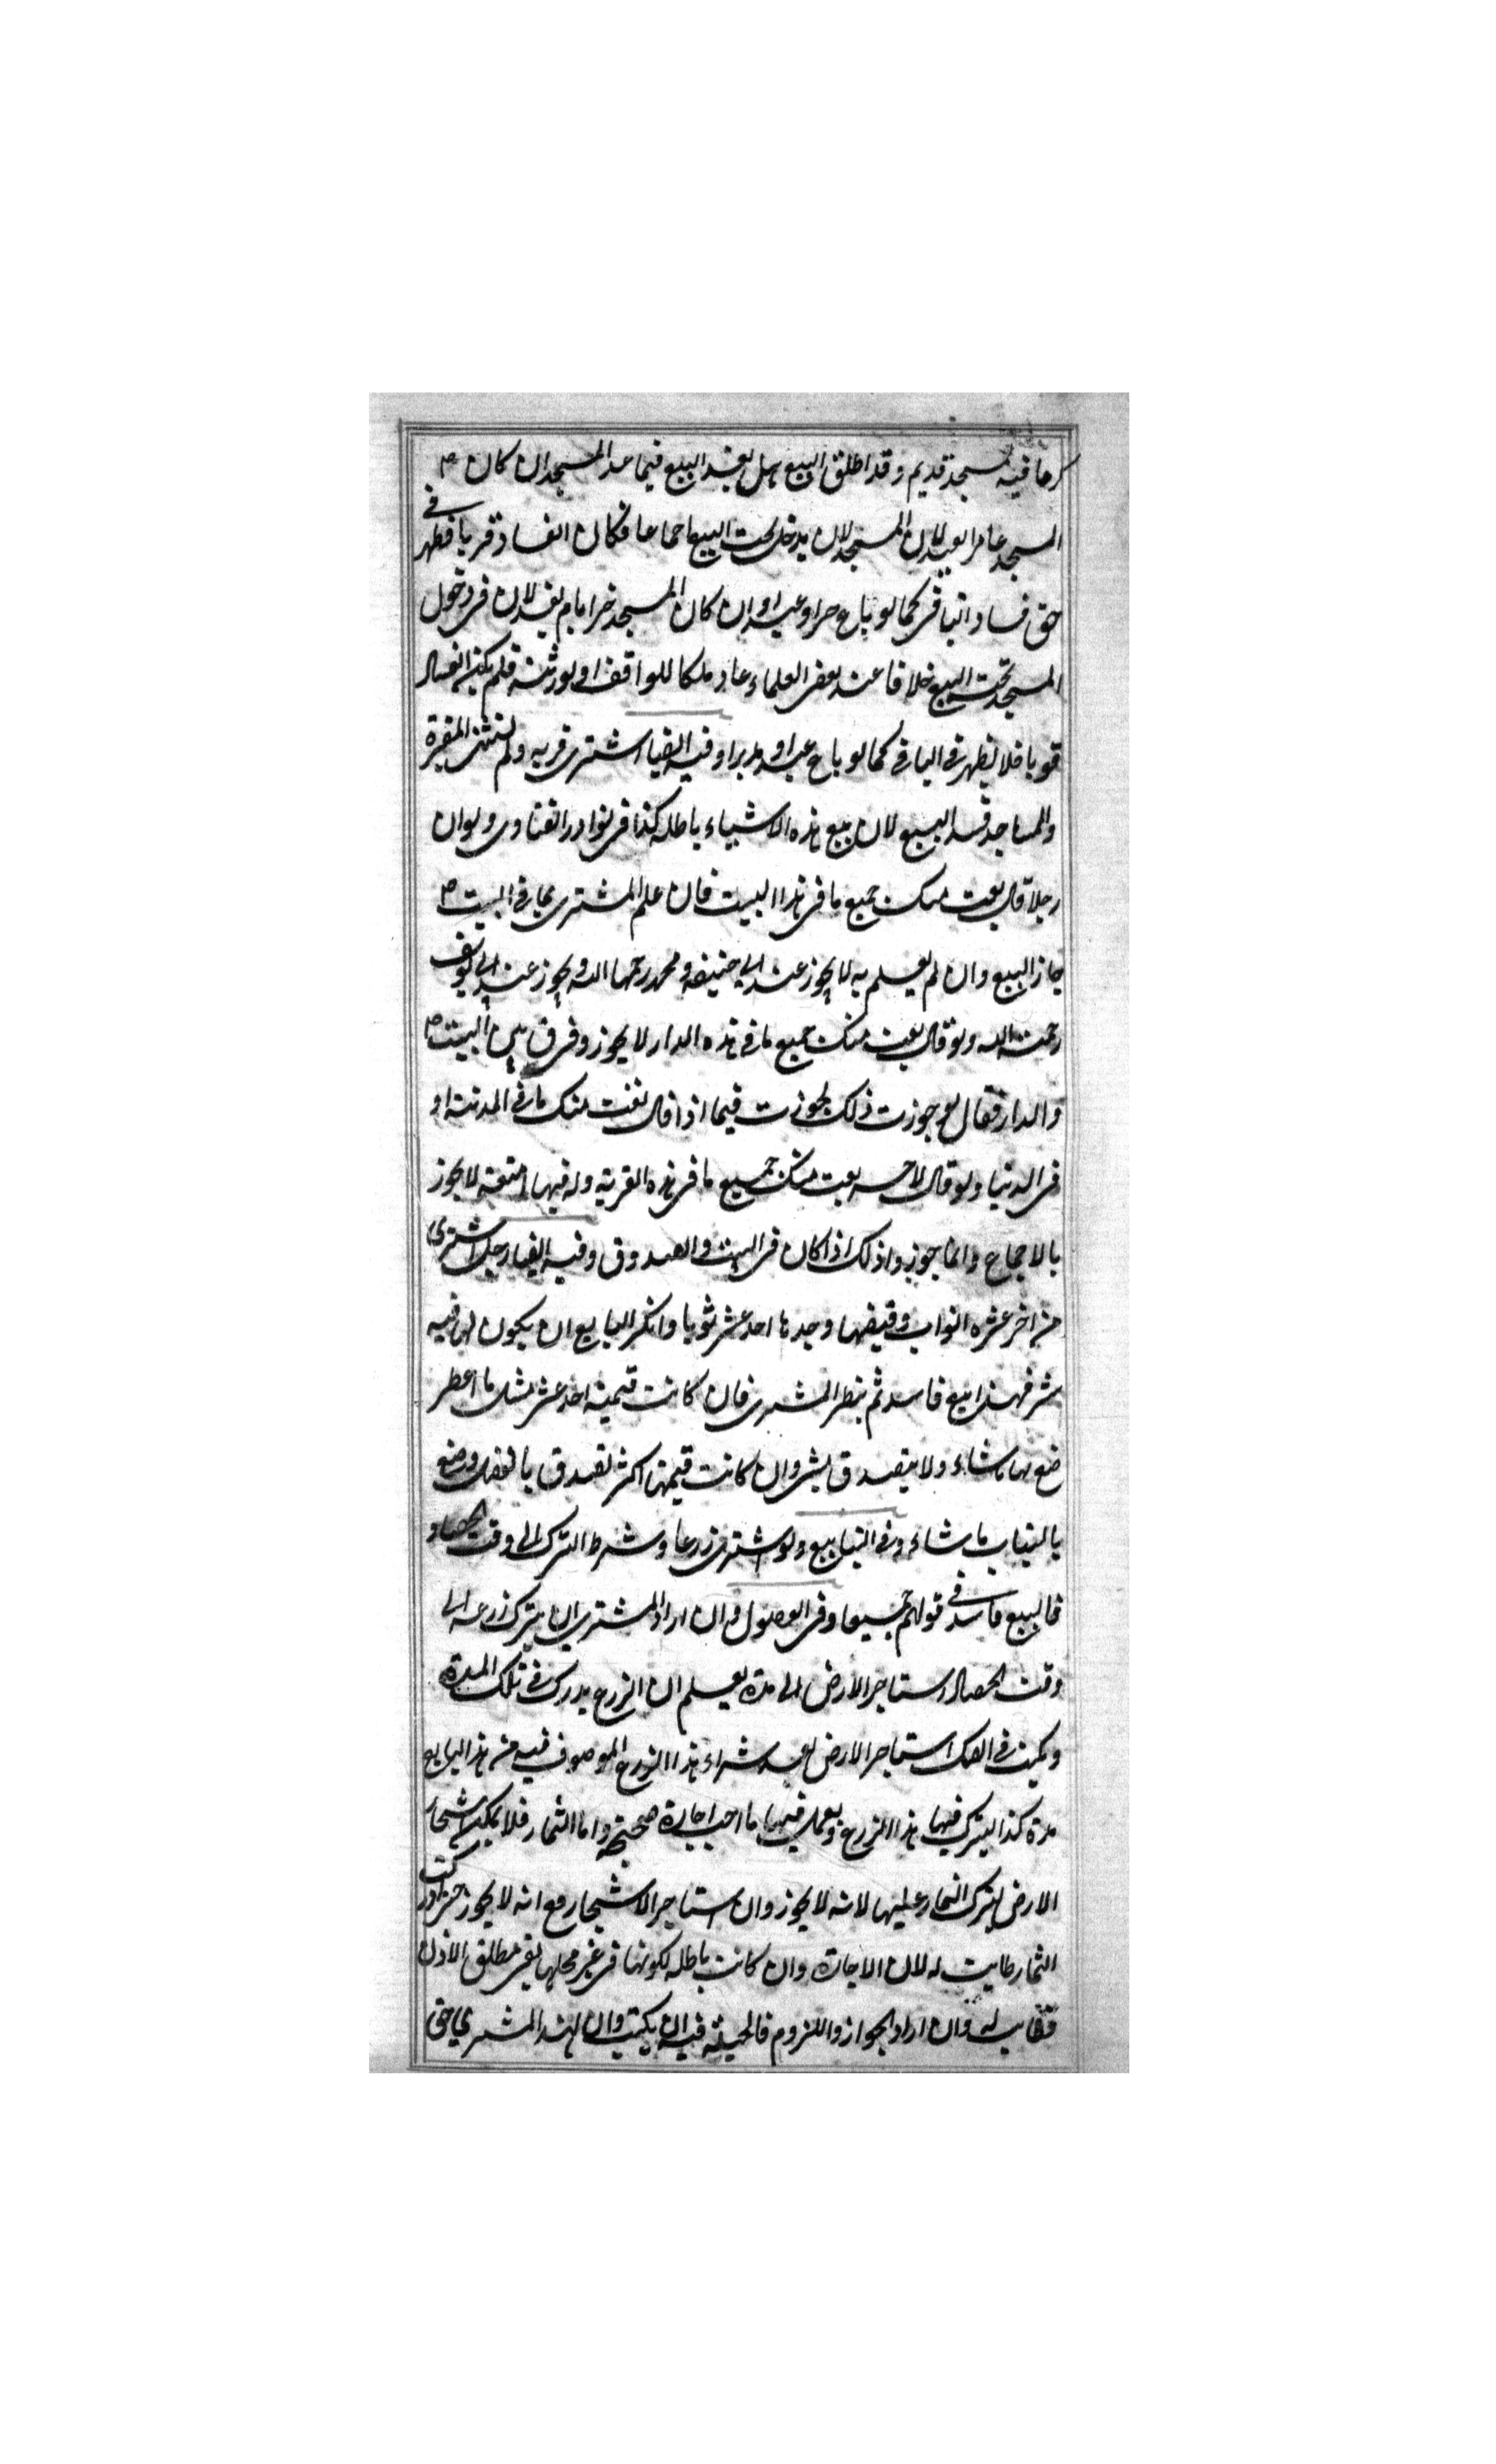 كرما فيه مسجد قديم وقد اطلق البيع هل يفسد البيع فيما عدا المسجد ان كان
المسجد عامرا يفسد لان المسجد لان يدخل تحت البيع اجماعا فكان الفساد قويا فظهر في
حق فساد الباقي كما لو باع حرا وعبدا وان كان المسجد خرابا لم يفسد لان في دخول
المسجد تحت البيع خلافا عند بعض العلماء عاد ملكا للواقف او لورثته فلم يكن الفساد
قويا فلا يظهر في الباقي كما لو باع عبدا ومدبرا وفيه ايضا اشترى قرية ولم يستثن المقبرة
والمساجد فسد البيع لان بيع هذه الاشياء باطلة كذا في نوادر الفتاوى ولو ان
رجلا قال بعت منك جميع ما في هذا البيت فان علم المشتري بما في البيت
جاز البيع وان لم يعلم به لا يجوز عند ابي حنيفة ومحمد رحمهما الله ويجوز عند ابي يوسف
رحمة الله ولو قال بعت منك جميع ما في هذه الدار لا يجوز وفرق بين البيت
والدار فقال لو جوزت ذلك لجوزت فيما اذا قال بعت منك ما في المدينة او
في الدنيا ولو قال لاخر بعت منك جميع ما في هذه القرية وله فيها امتعة لا يجوز
بالاجماع وانما جوزوا ذلك اذا كان في البيت والصندوق وفيه ايضا رجل اشترى
من اخر عشرة اثواب وقبضها وجدها احد عشر ثوبا وانكر البايع ان يكون له فيه
شئ فهذا بيع فاسد ثم ينظر المشترى فان كانت قيمته احد عشر مثل ما اعطى
صنع بها ما شاء ولا يتصدق بشئ وان كانت قيمتها اكثر تصدق بالفضل وصنع
بالثياب ما شاء وفي الينابيع ولو اشترى زرعا وشرط الترك الى وقت الحصاد
فالبيع فاسد في قولهم جميعا وفي الفصول وان اراد المشتري ان يترك زرعه الى
وقت الحصاد استاجر الارض الى مدة يعلم ان الزرع يدرك في تلك المدة
ويكتب في الصك استاجر الارض بعد شراء هذا الزرع الموصوف فيه من هذا البايع
مدة كذا ليترك فيها هذا الزرع ويعمل فيها ما احب اجارة صحيحة واما الثمار فلا يمكن استيجار
الارض ليترك الثمار عليها لانه لا يجوز وان استاجر الاشجار مع انه لا يجوز حتى ادركت
الثمار طابت له لان الاجارة وان كانت باطلة لكونها في غير محلها بقي مطلق الاذن
فطاب له وان اراد الجواز واللزوم فالحيلة فيه ان يكتب وان لهذا المشتري حق